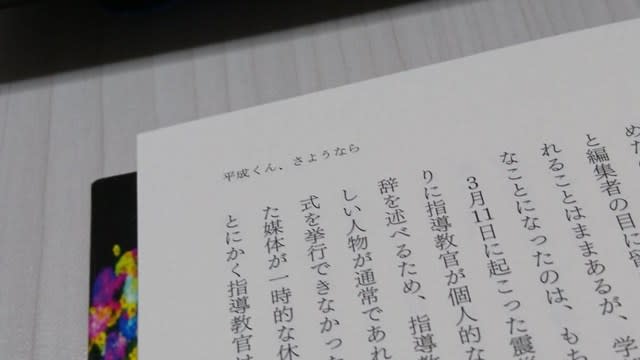 平成くん、さようなら
めた
と編集者の目に留
れることはままあるが、学
なことになったのは、もち
3月11日に起こった震災
りに指導教官が個人的な
辞を述べるため、指導教
しい人物が通常であれ
式を挙行できなかった
た媒体が一時的な休
とにかく指導教官は